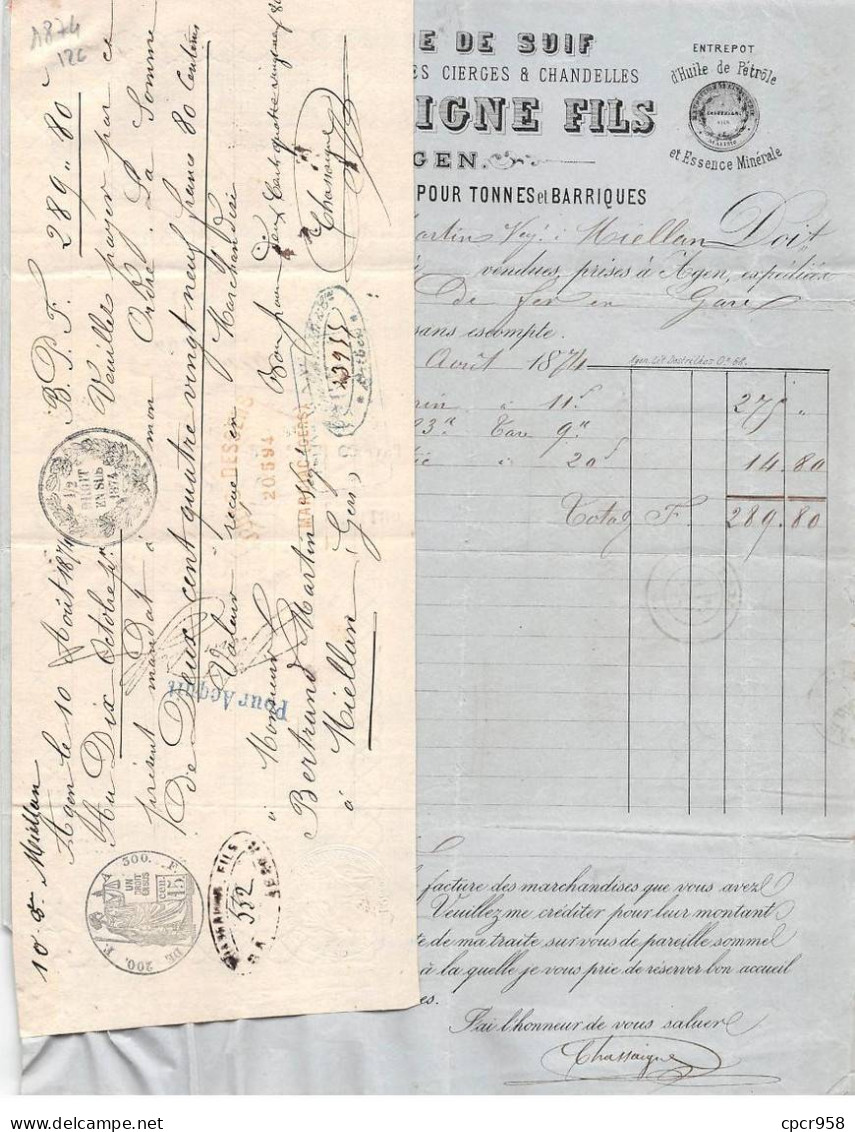 1874
12C
10 8bre Miellan
Agen le 10 Août 1874 B. P. F. 289 " 80 c
Au Dix Octobre Veuillez payer par ce
présent mandat à mon Ordre La Somme
de Deux cent quatre vingt neuf francs 80 Centimes
Valeur reçue en Marchandise
à Monsieur
Bertrand Martin
à Miellan Gers
Bon pour deux cent quatre vingt neuf 80
Chassaigne
1/2
DROIT
EN SUS
1874
Pour Acquit
20594
13955
500. F.
UN
DROIT
15
200. F. DE
FILS
532
E DE SUIF
ES CIERGES & CHANDELLES
IGNE FILS
GEN.
POUR TONNES et BARRIQUES
ENTREPOT
d'Huile de Pétrole
et Essence Minérale
artin à Miellan Doit
vendues, prises à Agen, expédiées
de fer en Gare
sans escompte.
Août 1874
à 11 f 275 "
23 k Tare 9 k
à 20 f 14.80
Total F. 289.80
facture des marchandises que vous avez
Veuillez me créditer pour leur montant
te de ma traite sur vous de pareille somme
à la quelle je vous prie de réserver bon accueil
es.
J'ai l'honneur de vous saluer
Chassaigne
cpcr958